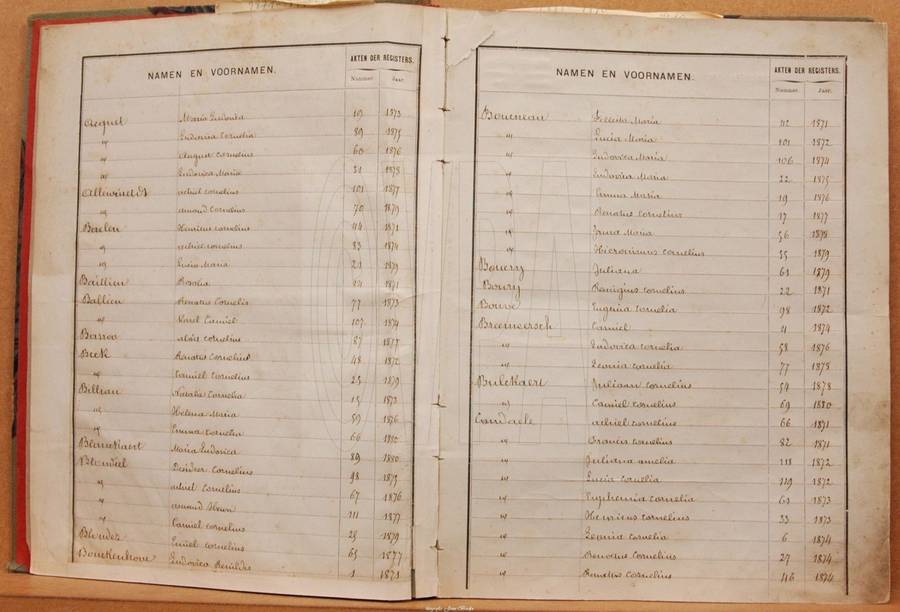 NAMEN EN VOORNAMEN. AKTEN DER REGISTERS.
Nummer. Jaar.
Acquet Maria Ludovica 19 1873
" Ludovica Cornelia 89 1875
" August Cornelius 60 1876
" Ludovica Maria 31 1878
Allewaeldt achiel Cornelius 101 1877
" amand Cornelius 70 1879
Baelen Henricus Cornelius 44 1871
" achiel Cornelius 83 1874
" Lucia Maria 21 1879
Baillien Rosalia 24 1871
Ballien Renatus Cornelis 77 1873
" Karel Camiel 107 1874
Barroo Cornelius 87 1877
Beek Renatus Cornelius 48 1872
" Camiel Cornelius 25 1879
Billiau Natalie Cornelia 15 1873
" Helena Maria 59 1876
" Emma Cornelia 66 1880
Blanckaert Maria Ludovica 89 1880
Blondeel Desideer Cornelius 98 1879
" achiel Cornelius 67 1876
" amand 111 1877
" Camiel Cornelius 29 1879
Blondez Emiel Cornelius 65 1877
Bouckenhove Ludovica Reinildis 1 1871
NAMEN EN VOORNAMEN. AKTEN DER REGISTERS.
Nummer. Jaar.
Boucneau Maria 42 1871
" Lucia Maria 101 1872
" Ludovica Maria 106 1874
" Ludovica Maria 22 1875
" Emma Maria 19 1876
" Renatus Cornelius 17 1877
" Irma Maria 56 1878
" Hieronimus Cornelius 35 1879
Bouery Juliana 61 1879
Boury Remigius Cornelius 22 1871
Bouve Eugenia Cornelia 98 1872
Breinaersch Camiel 11 1874
" Ludovica Cornelia 58 1876
" Leonia Cornelia 77 1878
Bulckaert Juliaan Cornelius 54 1878
" Camiel Cornelius 69 1880
Camdaele achiel Cornelius 66 1871
" Francis Cornelius 82 1871
" Juliana amelia 118 1872
" Lucia Cornelia 119 1872
" Euphemia Cornelia 61 1873
" Henricus Cornelius 33 1873
" Leonia Cornelia 6 1874
" Renatus Cornelius 27 1874
" Cornelius 46 1874